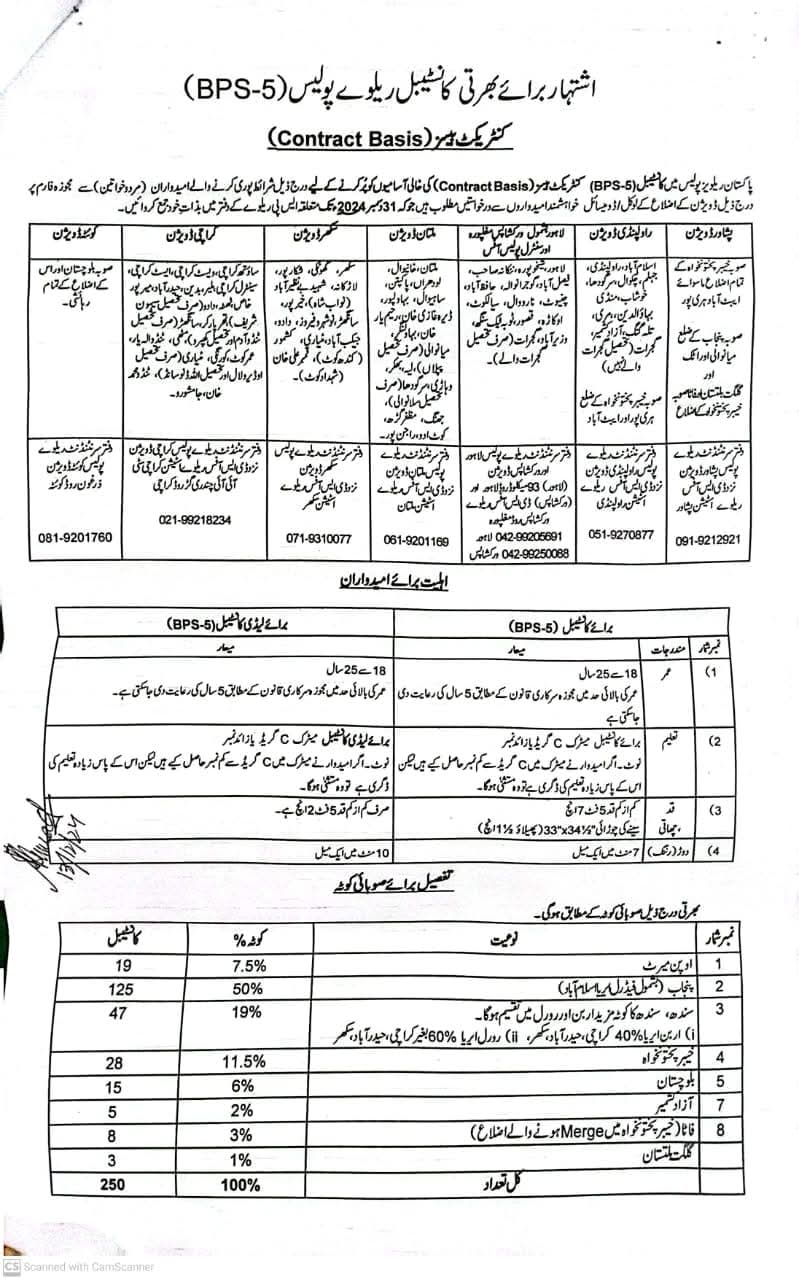 اشتہار برائے بھرتی کانسٹیبل ریلوے پولیس (BPS-5)
کنٹریکٹ بیسز (Contract Basis)
پاکستان ریلویز پولیس میں کانسٹیبل (BPS-5) کنٹریکٹ بیسز (Contract Basis) کی خالی آسامیوں کو پُر کرنے کے لیے درج ذیل شرائط پوری کرنے والے امیدواران (مرد و خواتین) سے مجوزہ فارم پر
درج ذیل ڈویژن کے اضلاع کے لوکل / ڈومیسائل خواہشمند امیدواروں سے درخواستیں مطلوب ہیں جو کہ 31 دسمبر 2024 تک متعلقہ ایس پی ریلوے کے دفتر میں بذات خود جمع کروائیں۔
پشاور ڈویژن
صوبہ خیبر پختونخواہ کے
تمام اضلاع ماسوائے
ایبٹ آباد ہری پور
صوبہ پنجاب کے ضلع
میانوالی اور اٹک
اور
گلگت بلتستان اور فاٹا صوبہ
خیبر پختونخواہ کے اضلاع
دفتر سپرنٹنڈنٹ ریلوے
پولیس پشاور ڈویژن
نزد ڈی ایس آفس
ریلوے اسٹیشن پشاور
091-9212921
راولپنڈی ڈویژن
اسلام آباد، راولپنڈی،
جہلم، چکوال، سرگودھا،
خوشاب، منڈی
بہاؤالدین، مری،
تلہ گنگ، آزاد کشمیر
گجرات (تحصیل گجرات
والے نہیں)
صوبہ خیبر پختونخواہ کے ضلع
ہری پور اور ایبٹ آباد
دفتر سپرنٹنڈنٹ ریلوے
پولیس راولپنڈی ڈویژن
نزد ڈی ایس آفس ریلوے
اسٹیشن راولپنڈی
051-9270877
لاہور بشمول ورکشاپس مغلپورہ
اور سنٹرل پولیس آفس
لاہور، شیخوپورہ، ننکانہ صاحب،
فیصل آباد، گوجرانوالہ، حافظ آباد،
چنیوٹ، نارووال، سیالکوٹ،
اوکاڑہ، قصور، ٹوبہ ٹیک سنگھ،
وزیر آباد، گجرات (صرف تحصیل
گجرات والے)۔
دفتر سپرنٹنڈنٹ ریلوے پولیس لاہور
اور ورکشاپس ڈویژن
(لاہور) 93-میکلوڈ روڈ لاہور اور
(ورکشاپس) ڈی ایس آفس ریلوے
ورکشاپس روڈ مغلپورہ
042-99205691 لاہور
042-99250068 ورکشاپس
ملتان ڈویژن
ملتان، خانیوال،
لودھراں، پاکپتن،
ساہیوال، بہاولپور،
ڈیرہ غازی خان، رحیم یار
خان، بہاولنگر،
میانوالی (صرف تحصیل
پپلاں)، لیہ، بھکر،
وہاڑی، سرگودھا (صرف
تحصیل سلانوالی)،
جھنگ، مظفر گڑھ،
کوٹ ادو، راجن پور۔
دفتر سپرنٹنڈنٹ ریلوے
پولیس ملتان ڈویژن
نزد ڈی ایس آفس ریلوے
اسٹیشن ملتان
061-9201169
سکھر ڈویژن
سکھر، گھوٹکی، شکار پور،
لاڑکانہ، شہید بے نظیر آباد
(نواب شاہ)، خیر پور،
سانگھڑ، نوشہرو فیروز، دادو،
جیکب آباد، مٹیاری، کشمور
(کندھ کوٹ)، قمبر علی خان
(شہداد کوٹ)۔
دفتر سپرنٹنڈنٹ ریلوے پولیس
سکھر ڈویژن
نزد ڈی ایس آفس ریلوے
اسٹیشن سکھر
071-9310077
کراچی ڈویژن
ساؤتھ کراچی، ویسٹ کراچی، ایسٹ کراچی،
سینٹرل کراچی، ملیر، بدین، حیدر آباد، میرپور
خاص، ٹھٹھہ، دادو (صرف تحصیل سیہون
شریف)، تھرپارکر، سانگھڑ (صرف تحصیل
ٹنڈو آدم اور تحصیل کھپرو)، مٹھی، ٹنڈو الہ یار،
عمر کوٹ، کورنگی، مٹیاری (صرف تحصیل
ٹنڈو محمد
خان، جامشورو۔
دفتر سپرنٹنڈنٹ ریلوے پولیس کراچی ڈویژن
نزد ڈی ایس آفس ریلوے اسٹیشن کراچی سٹی
آئی آئی چندریگر روڈ کراچی
021-99218234
کوئٹہ ڈویژن
صوبہ بلوچستان اور اس
کے اضلاع کے تمام
رہائشی۔
دفتر سپرنٹنڈنٹ ریلوے
پولیس کوئٹہ ڈویژن
زرغون روڈ کوئٹہ
081-9201760
اہلیت برائے امیدواران
برائے کانسٹیبل (BPS-5) برائے لیڈی کانسٹیبل (BPS-5)
نمبر شمار مندرجات معیار معیار
(1 عمر 18 سے 25 سال 18 سے 25 سال
عمر کی بالائی حد میں مجوزہ سرکاری قانون کے مطابق 5 سال کی رعایت دی
جا سکتی ہے
عمر کی بالائی حد میں مجوزہ سرکاری قانون کے مطابق 5 سال کی رعایت دی جا سکتی ہے۔
(2 تعلیم برائے کانسٹیبل میٹرک C گریڈ یا زائد نمبر
نوٹ۔ اگر امیدوار نے میٹرک میں C گریڈ سے کم نمبر حاصل کیے ہیں لیکن
اس کے پاس زیادہ تعلیم کی ڈگری ہے تو وہ مستثنیٰ ہوگا۔
برائے لیڈی کانسٹیبل میٹرک C گریڈ یا زائد نمبر
نوٹ۔ اگر امیدوار نے میٹرک میں C گریڈ سے کم نمبر حاصل کیے ہیں لیکن اس کے پاس زیادہ تعلیم کی
ڈگری ہے تو وہ مستثنیٰ ہوگا۔
(3 قد کم از کم قد 5 فٹ 7 انچ صرف کم از کم قد 5 فٹ 2 انچ ہے۔
چھاتی، سینے کی چوڑائی "33"x34½ (پھیلاؤ 1½ انچ)
(4 دوڑ (رننگ) 7 منٹ میں ایک میل 10 منٹ میں ایک میل
13/12/24
تفصیل برائے صوبائی کوٹہ
بھرتی درج ذیل صوبائی کوٹہ کے مطابق ہوگی۔
نمبر شمار نوعیت کوٹہ % کانسٹیبل
1 اوپن میرٹ 7.5% 19
2 پنجاب (بشمول فیڈرل ایریا اسلام آباد) 50% 125
3 سندھ، سندھ کا کوٹہ مزید اربن اور رورل میں تقسیم ہوگا۔ 19% 47
(i اربن ایریا 40% کراچی، حیدر آباد، سکھر، (ii رورل ایریا 60% بغیر کراچی، حیدر آباد، سکھر
4 خیبر پختونخواہ 11.5% 28
5 بلوچستان 6% 15
7 آزاد کشمیر 2% 5
8 فاٹا (خیبر پختونخواہ میں Merge ہونے والے اضلاع) 3% 8
گلگت بلتستان 1% 3
کل تعداد 100% 250
CS Scanned with CamScanner